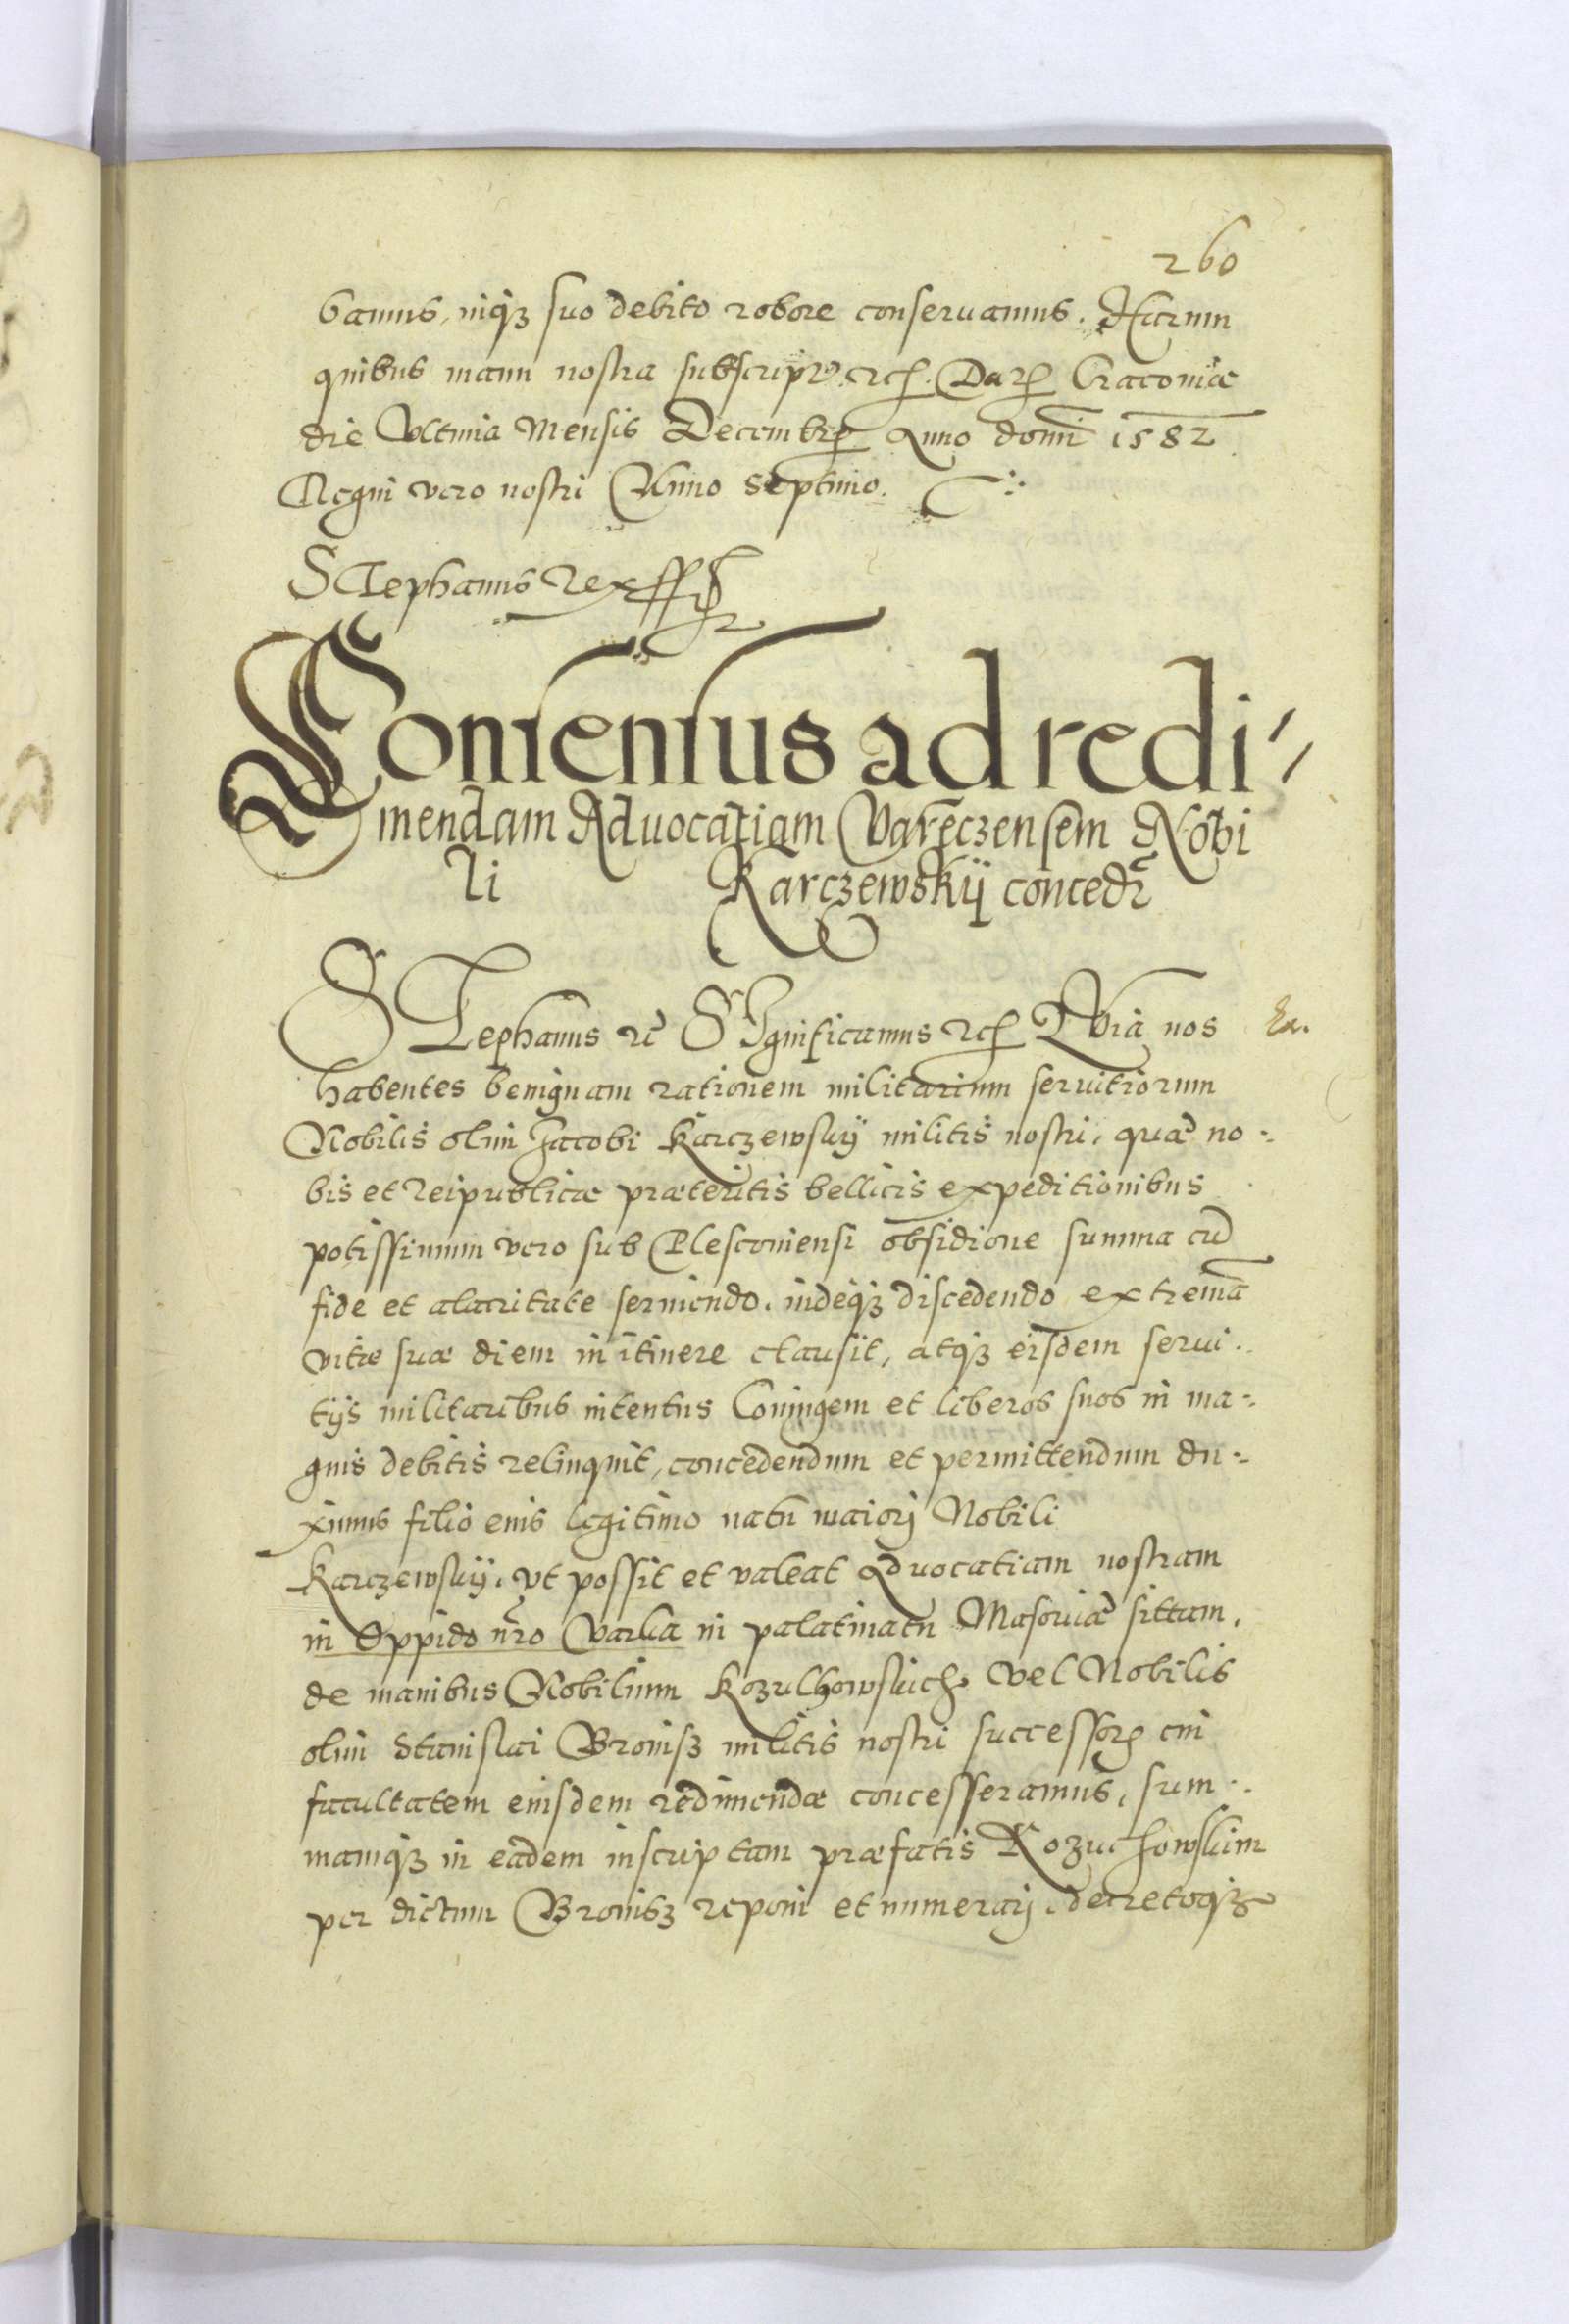 260
bamus, inq₃ suo debito robore conseruamus. Harum
quibus manu nostra subscrip. etc. Dat. Cracouiæ
die Vltima Mensis Decembr. Anno domi 1582
Regni vero nostri Anno Septimo.
Stephanus Rex ss
Consensus ad redi
mendam Aduocatiam Vareczensem Nobi
li Karczewskÿ conceditr
Stephanus etc Significamus etc Quia nos
Ex.
habentes benignam rationem militarium seruitiorum
Nobilis olim Jacobi Karczewskÿ militis nostri, quæ no-
bis et Reipublicæ præteritis bellicis expeditionibus
potissimum vero sub Plesconiensi obsidione summa cū
fide et alacritate seruiendo, indeq₃ discedendo extremā
vitæ suæ diem in itinere clausit, atq₃ eisdem serui-
tijs militaribus intentus Coniugem et liberos suos in ma-
gnis debitis relinquit, concedendum et permittendum du-
ximus filio eius legitimo natu maiorj Nobili
Karczewskÿ, vt possit et valeat Aduocatiam nostram
in Oppido nrō Varka in palatinatu Masouiæ sittam,
de manibus Nobilium Kozuchowskich vel Nobilis
olim Stanislai Bronisz militis nostri successor. cui
facultatem eiusdem redimendæ concesseramus, sum-
mamq₃ in eadem inscriptam præfatis Kozuchowskim
per dictum Bronisz reponi et numerarj, decretoq₃